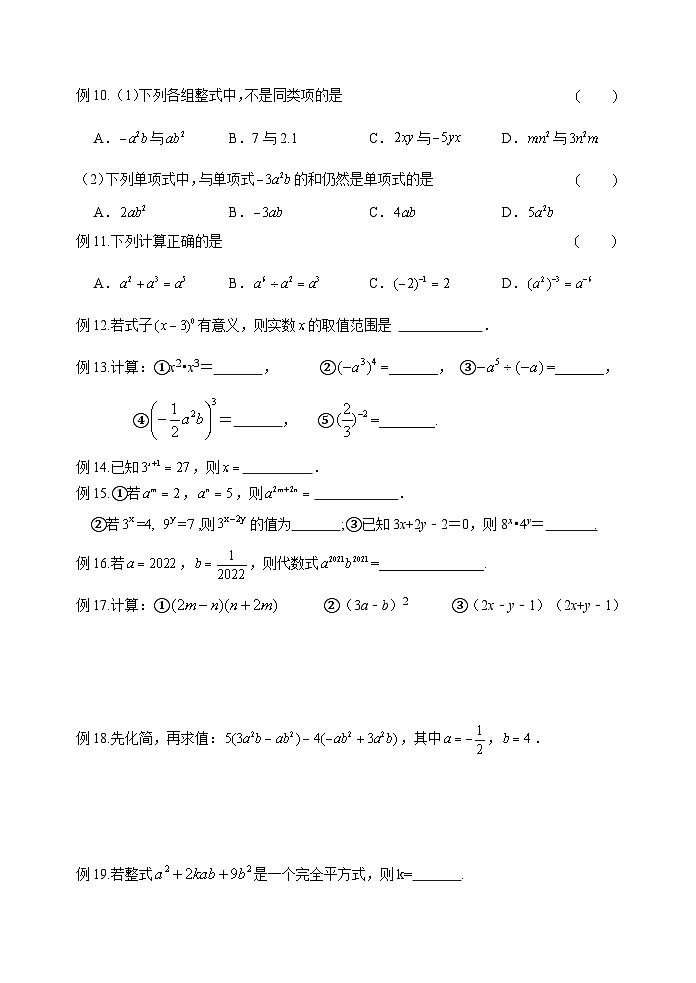 例10.（1）下列各组整式中,不是同类项的是 (　　)
A. －a²b与ab²　B. 7与2.1　C. 2xy与－5yx　D. mn²与3n²m
（2）下列单项式中,与单项式－3a²b的和仍然是单项式的是 (　　)
A. 2ab²　B. －3ab　C. 4ab　D. 5a²b
例11.下列计算正确的是 (　　)
A. a²＋a³＝a⁵　B. a⁶÷a²＝a³　C. (－2)⁻¹＝2　D. (a²)⁻³＝a⁻⁶
例12.若式子(x－3)⁰有意义，则实数x的取值范围是 ____________.
例13.计算：①x²•x³＝_______，　②(－a³)⁴=_______，　③－a⁵÷(－a)=_______，
④(－1/2 a²b)³＝_______，　⑤(2/3)⁻²=________.
例14.已知3ˣ⁺¹＝27，则x＝__________.
例15.①若aᵐ＝2，aⁿ＝5，则a²ᵐ⁺²ⁿ＝____________.
②若3ˣ=4, 9ʸ=7,则3ˣ⁻²ʸ的值为_______;③已知3x+2y﹣2＝0，则8ˣ•4ʸ＝_______.
例16.若a＝2022，b＝1/2022，则代数式a²⁰²¹b²⁰²¹=_______________.
例17.计算：①(2m－n)(n＋2m)　②（3a﹣b）²　③（2x﹣y﹣1）（2x+y﹣1）
例18.先化简，再求值：5(3a²b－ab²)－4(－ab²＋3a²b)，其中a＝－1/2，b＝4.
例19.若整式a²＋2kab＋9b²是一个完全平方式，则k=_______.